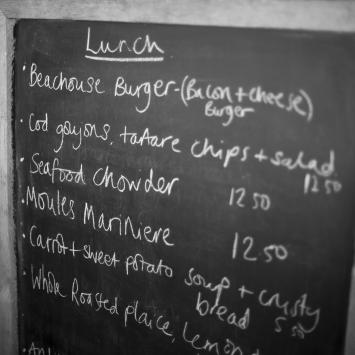 Lunch
· Beachouse Burger-(Bacon + cheese)
Burger
· Cod goujons, tartare chips + salad
12 50
· Seafood Chowder 12 50
· Moules Mariniere 12 50
· Carrot + sweet potato soup + crusty
bread 5 50
· Whole Roasted plaice, lemon